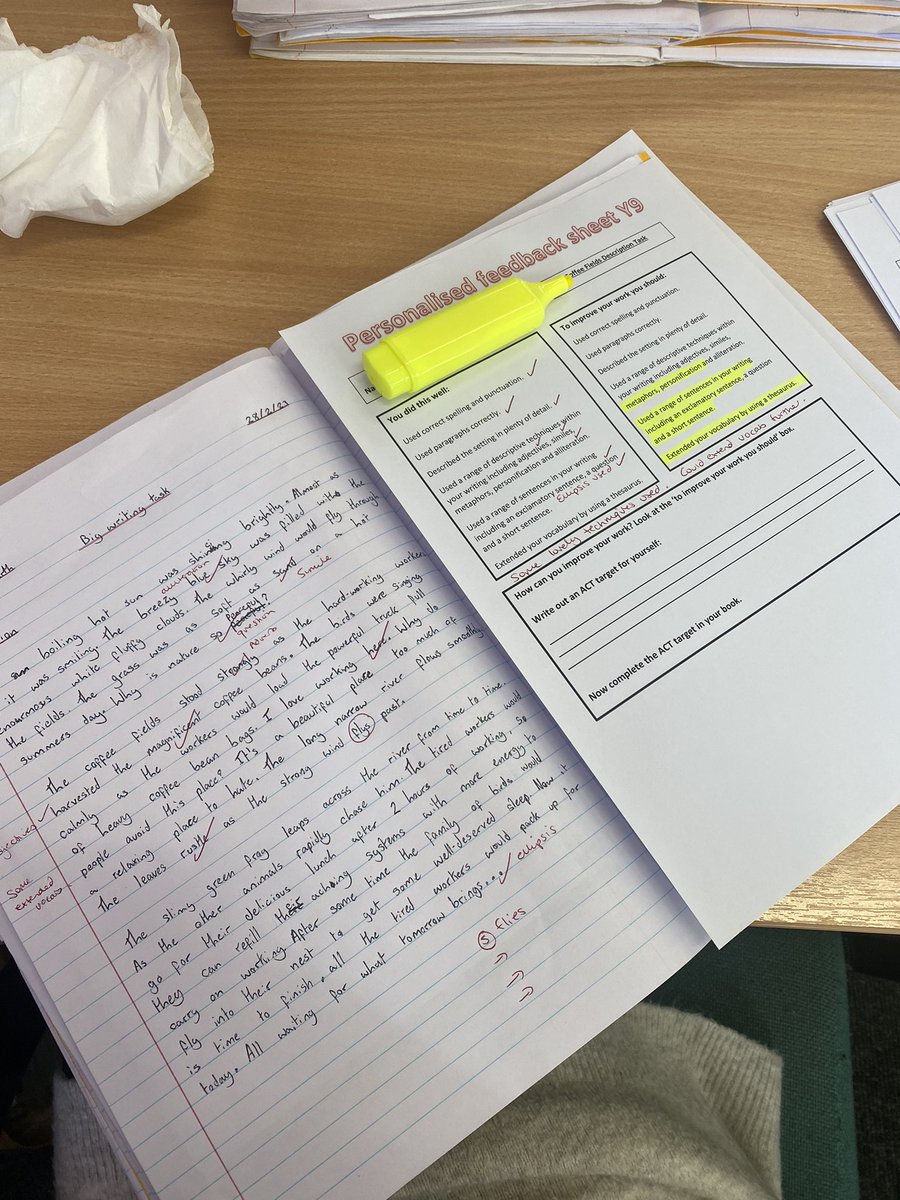 28/2/23
Big writing task
boiling hot sun was shining brightly. Almost as
it was smiling. The breezy blue sky was filled with the
enourmous white fluffy clouds. The whirly wind would fly through
the fields. The grass was as soft as sand on a hot
summers day. Why is nature so peaceful?
Simile
question
The coffee fields stood strongly as the hard-working worker
harvested the magnificent coffee beans. The birds were singing
calmly as the workers would load the powerful truck full
of heavy coffee bean bags. I love working here. Why do
people avoid this place? It's a beautiful place too much of
a relaxing place to hate. The long narrow river flows smoothly
The leaves rustle as the strong wind flys past.
Some
extended
vocab
The slimy green frog leaps across the river from time to time.
As the other animals rapidly chase him. The tired workers would
go for their delicious lunch after 2 hours of working, so
they can refill their achoing systems with more energy to
carry on working. After some time the family of birds would
fly into their nest to get some well-deserved sleep. Now it
is time to finish, all the tired workers would pack up for
today. All waiting for what tomorrow brings....
ellipsis
S flies
Personalised feedback sheet Y9
Coffee Fields Description Task
Na
You did this well:
Used correct spelling and punctuation.
Used paragraphs correctly.
Described the setting in plenty of detail.
Used a range of descriptive techniques within
your writing including adjectives, similes,
metaphors, personification and alliteration.
Used a range of sentences in your writing
including an exclamatory sentence, a question
and a short sentence.
Ellipsis used
Extended your vocabulary by using a thesaurus.
To improve your work you should:
Used correct spelling and punctuation.
Used paragraphs correctly.
Described the setting in plenty of detail.
Used a range of descriptive techniques within
your writing including adjectives, similes,
metaphors, personification and alliteration.
Used a range of sentences in your writing
including an exclamatory sentence, a question
and a short sentence.
Extended your vocabulary by using a thesaurus.
Some lovely techniques used. Could extend vocab further.
How can you improve your work? Look at the 'to improve your work you should' box.
Write out an ACT target for yourself:
Now complete the ACT target in your book.